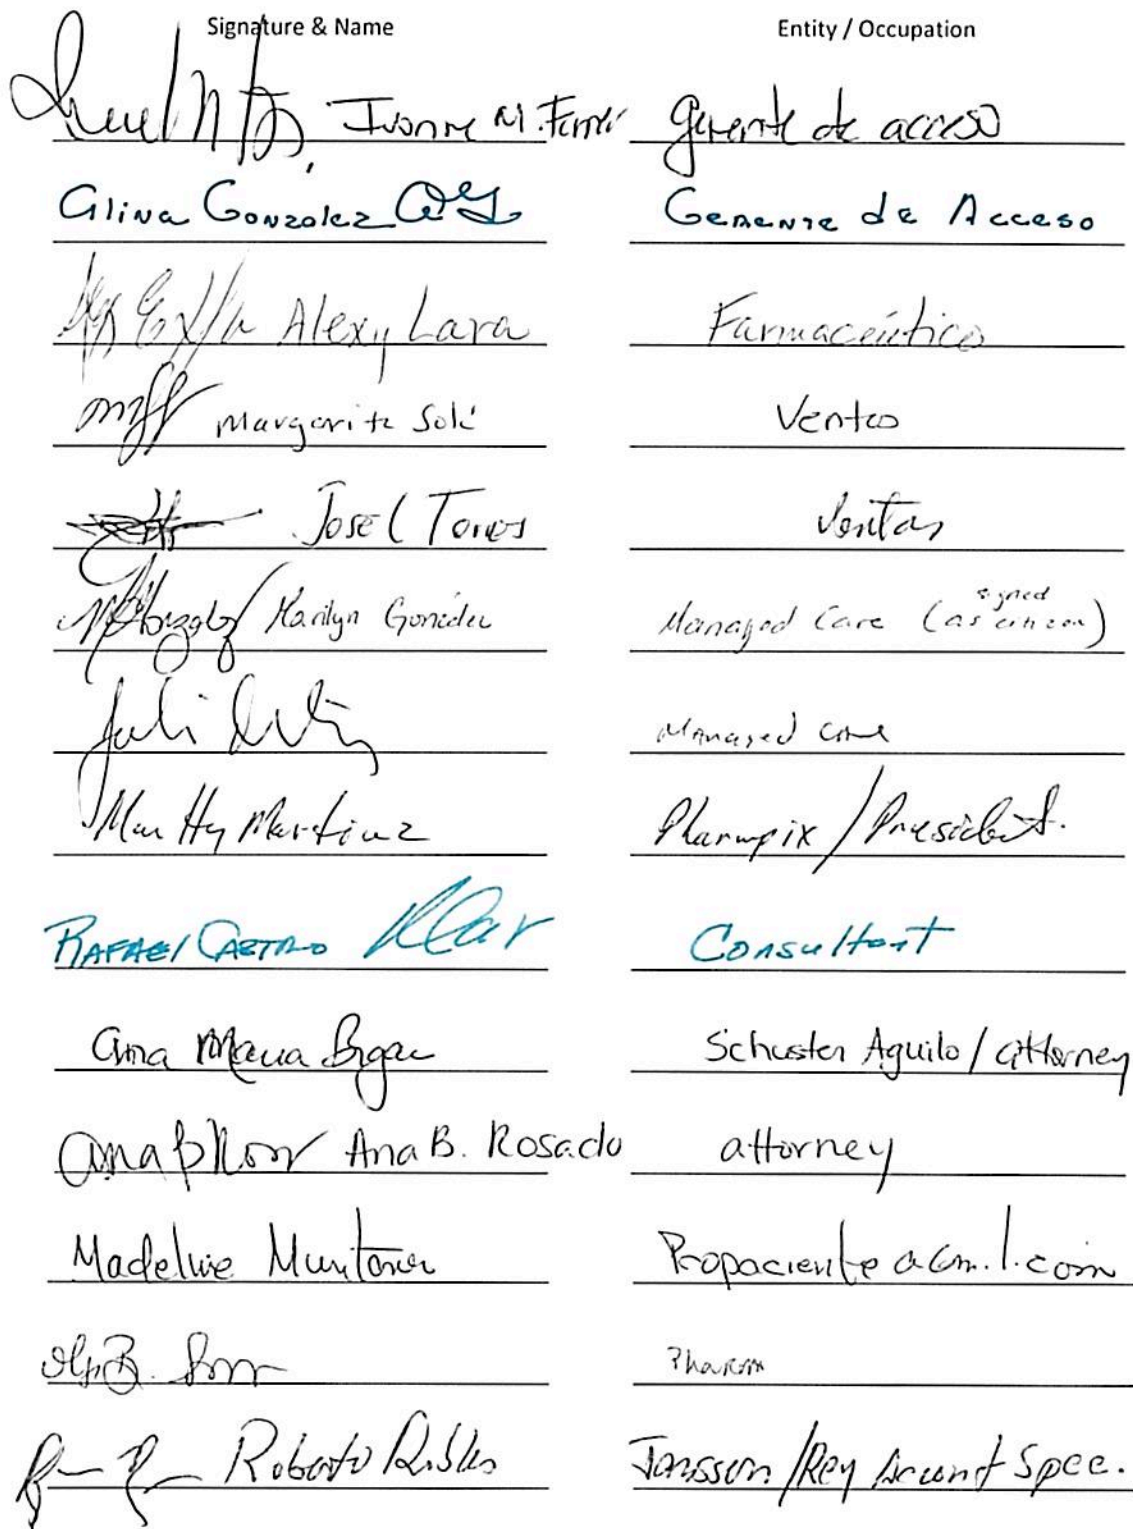 Signature & Name Entity / Occupation
Ivonne M. Ferrer Gerente de acceso
Glina González Gerente de Acceso
Alexy Lara Farmacéutico
Margarita Solé Ventas
José L Torres Ventas
MGonzalez Marilyn González Managed Care (signed as citizen)
Managed Care
Martty Martinez Pharmpix / President.
RAFAEL CASTRO Consultant
Ana Maria Schuster Aguilo / attorney
Ana B. Rosado attorney
Madeline Muntaner Propaciente
Pharm
Roberto Robles Janssen / Key Account Spec.